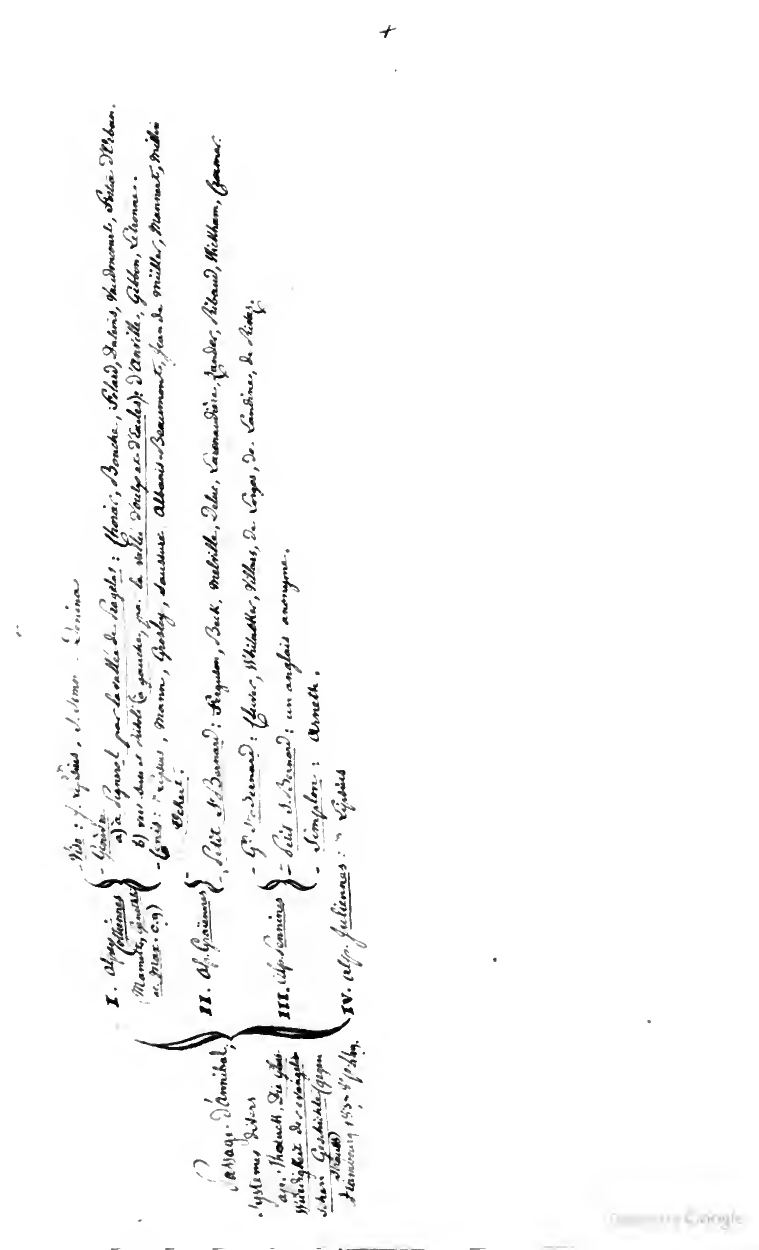 +
Passage d'Annibal,
Systemes divers
ap. Tholuck, Die Glaub
Würdigkeit der evangelis
schen Geschichte (gegen
Strauss)
Hambourg
I. Alpes
Cottiennes
ac. Max. C.9)
- Viso :
- Genèvre
a) à Pignerol par la vallée de Pragelas : Chorier, Bouche, Folard, Dutems, Vaudoncourt, Fortia d'Urban.
b) vers Suse et (à gauche, par la vallée d'Oulx et d'Exiles) : d'Anville, Gibbon, Letronne.
- Cenis : Mann, Grosley, Saussure Albanis-Beaumont, Jean de Müller, Mannert, Millin
Uckert.
II. Alp. Graiennes
- Petit St Bernard : Ferguson, Beck, Melville, Deluc, Larenaudière, Zander, Ribaud, Wickham, Cramer.
III. Alp. Pennines
- Gd St Bernard : Cluvier, Whitaker, Villars, De Loges, De Landine, de Rivaz.
- Petit S. Bernard : un anglais anonyme.
- Simplon : Arneth.
IV. Alp. Juliennes :